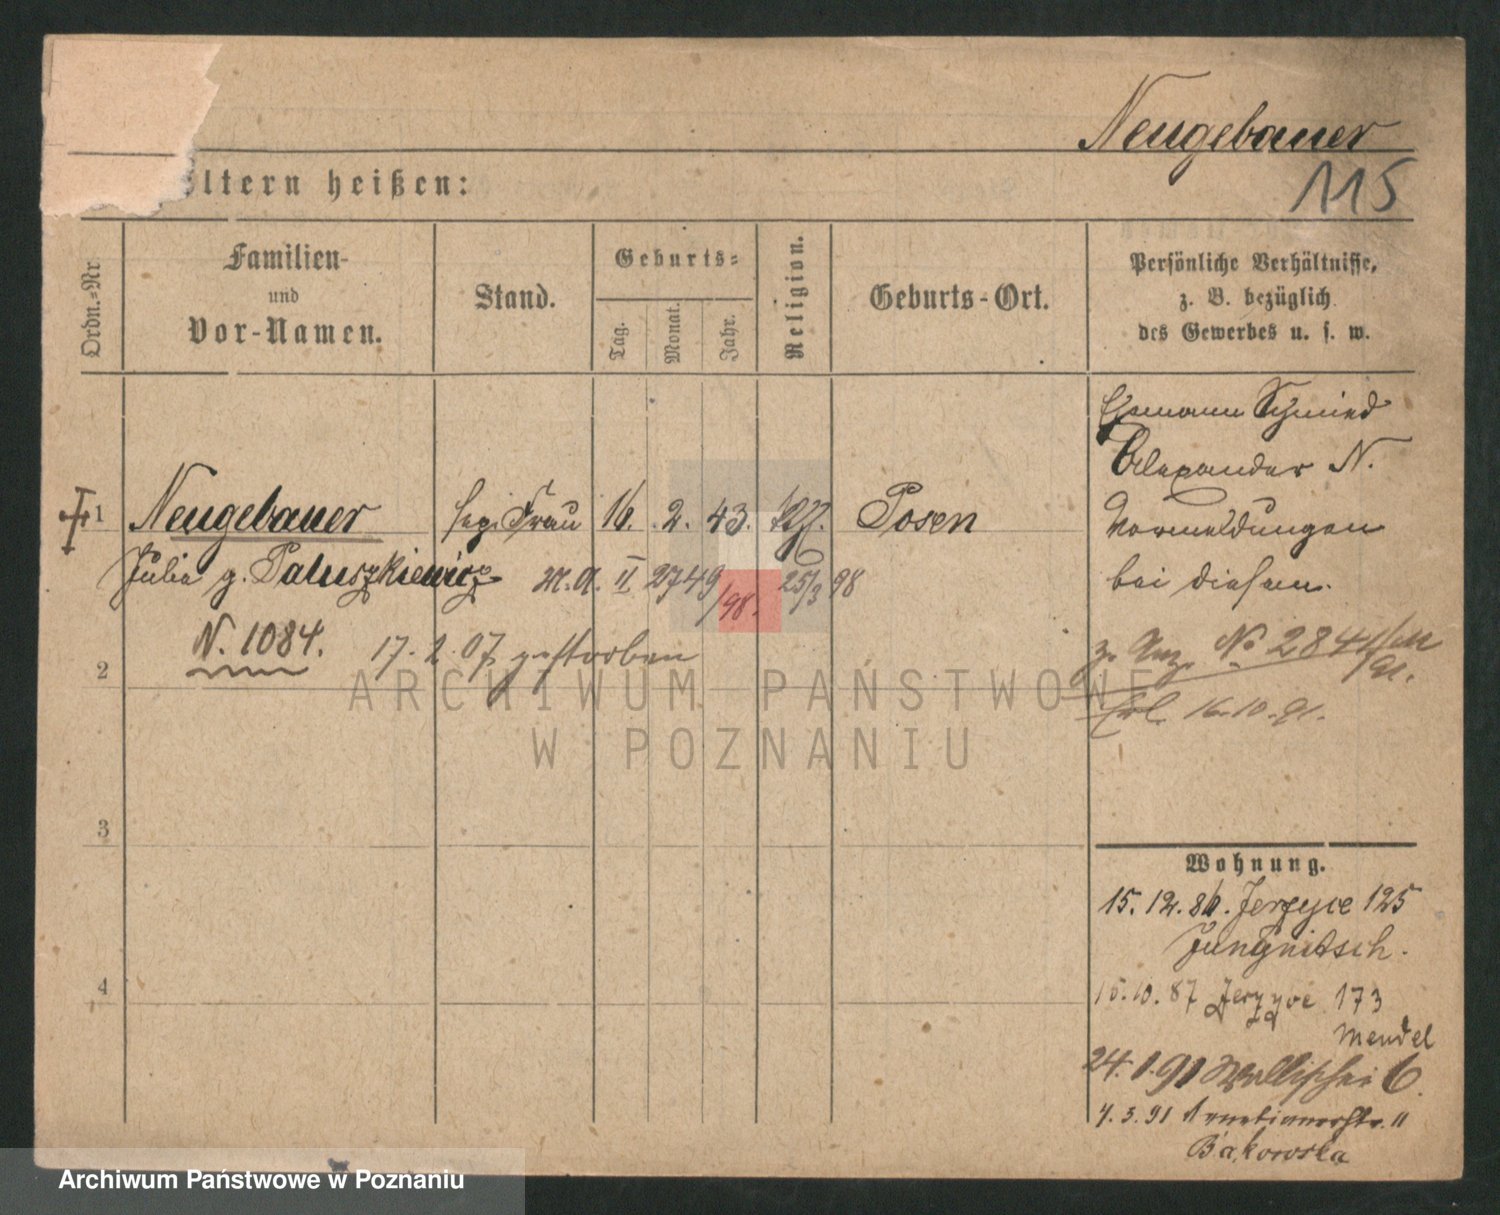 Neugebauer
115
ltern heißen:
Ordn.=Nr.
Familien-
und
Vor-Namen.
Stand.
Geburts=
Tag.
Monat.
Jahr.
Religion.
Geburts-Ort.
Persönliche Verhältnisse,
z. B. bezüglich
des Gewerbes u. s. w.
Ehemann Schmied
Alexander N.
Vormeldungen
bei diesem.
1
Neugebauer
sep. Frau 16. 2. 43. Posen
Julia g. Paluszkiewicz M.A. II 2749/98. 25/3 98
N. 1084. 17. 2. 07 gestorben
z. Anz. No 2841
Erl. 16.10.91.
2
3
4
ARCHIWUM PAŃSTWOWE
W POZNANIU
Wohnung.
15. 12. 86. Jerzyce 125
Jungnitsch.
15. 10. 87 Jerzyce 173
Mendel
24. 1. 91 Wallischei 6.
7. 3. 91 11
Bąkowska
Archiwum Państwowe w Poznaniu